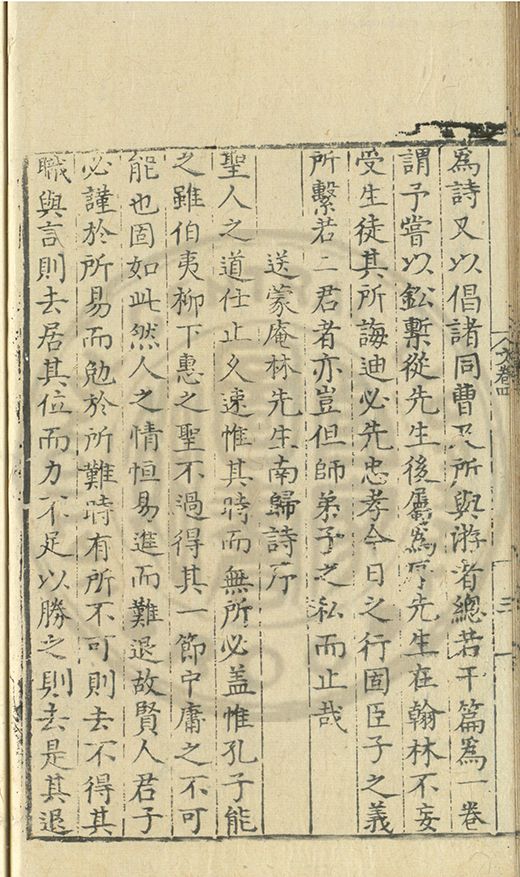 為詩又以倡諸同曹及所與游者總若干篇為一卷
謂予嘗以鉛槧從先生後屬為序先生在翰林不妄
受生徒其所誨迪必先忠孝今日之行固臣子之義
所繫若二君者亦豈但師弟子之私而止哉
送蒙庵林先生南歸詩序
聖人之道仕止久速惟其時而無所必盖惟孔子能
之雖伯夷柳下惠之聖不過得其一節中庸之不可
能也固如此然人之情恒易進而難退故賢人君子
必謹於所易而勉於所難時有所不可則去不得其
職與言則去居其位而力不足以勝之則去是其退
文卷四
三